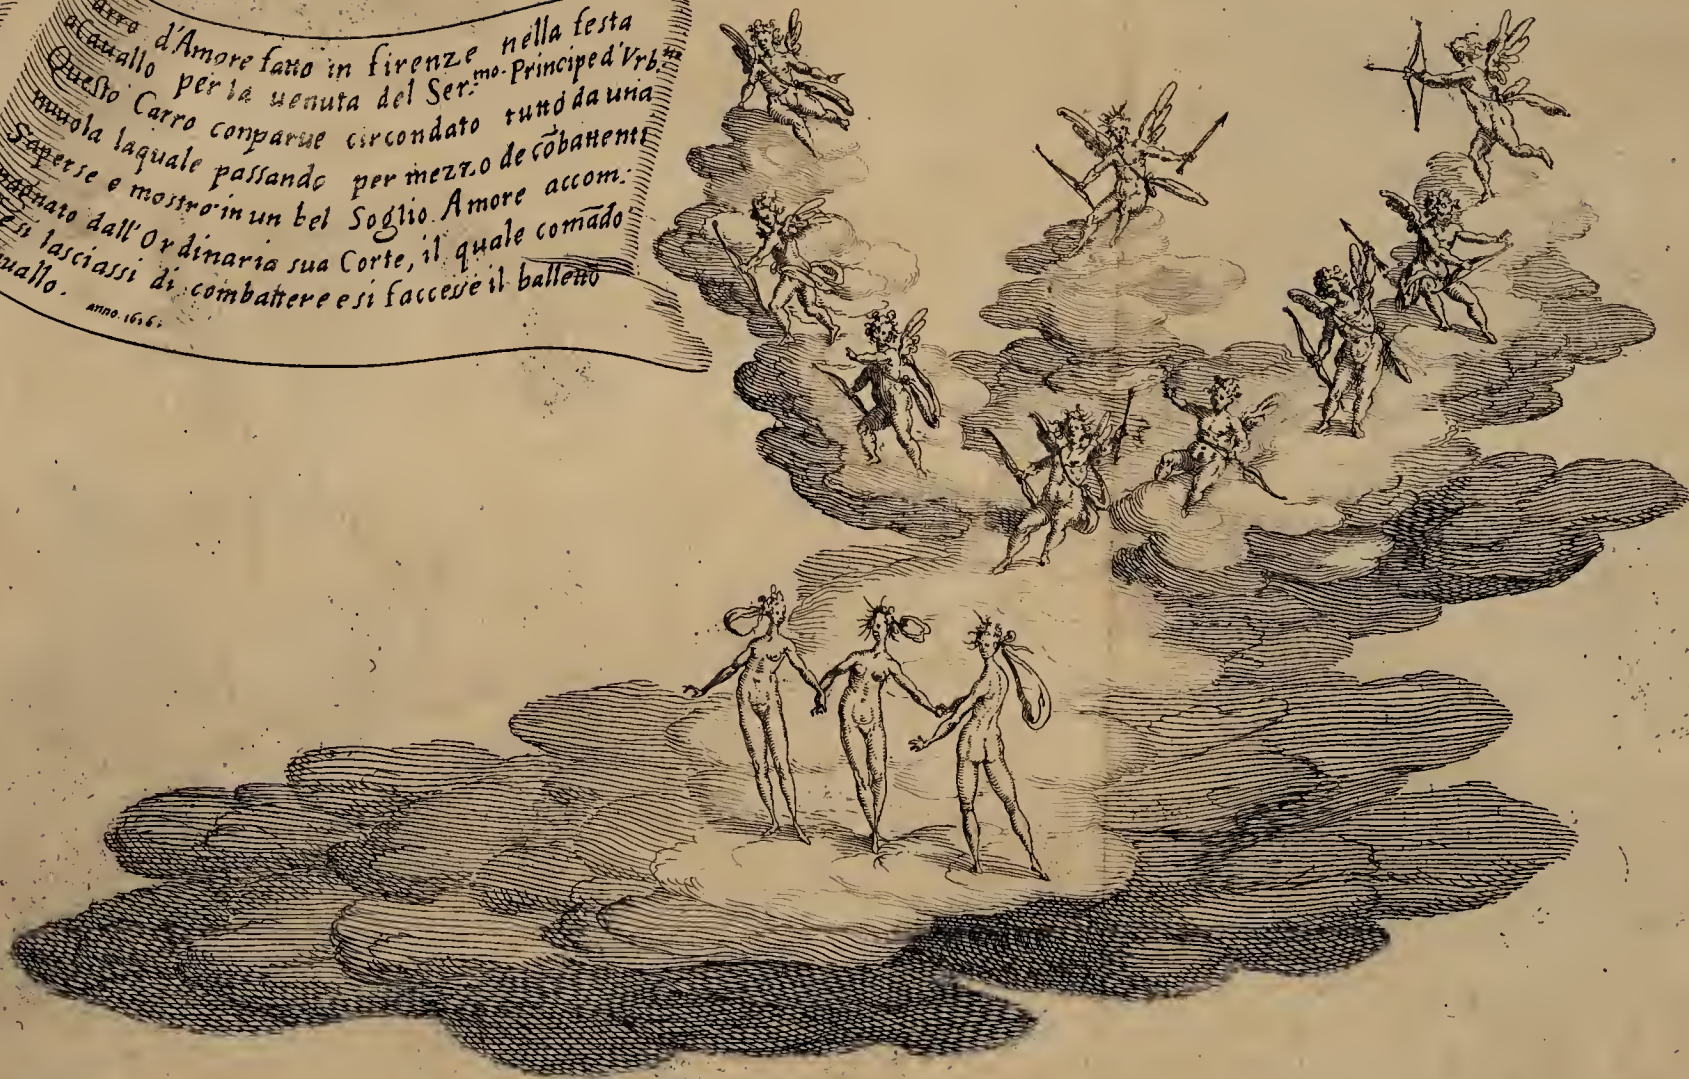 arro d'Amore fatto in firenze nella festa
acauallo per la uenuta del Ser.mo Principe d'Vrb.no
Questo Carro conparue circondato tutto da una
nuuola laquale passando per mezzo de cõbattenti
S'aperse e mostro in un bel Soglio. Amore accom:
pagnato dall'Ordinaria sua Corte, il quale comãdo
e si lasciassi di combattere e si faccesse il balletto
uallo.
anno. 1616: